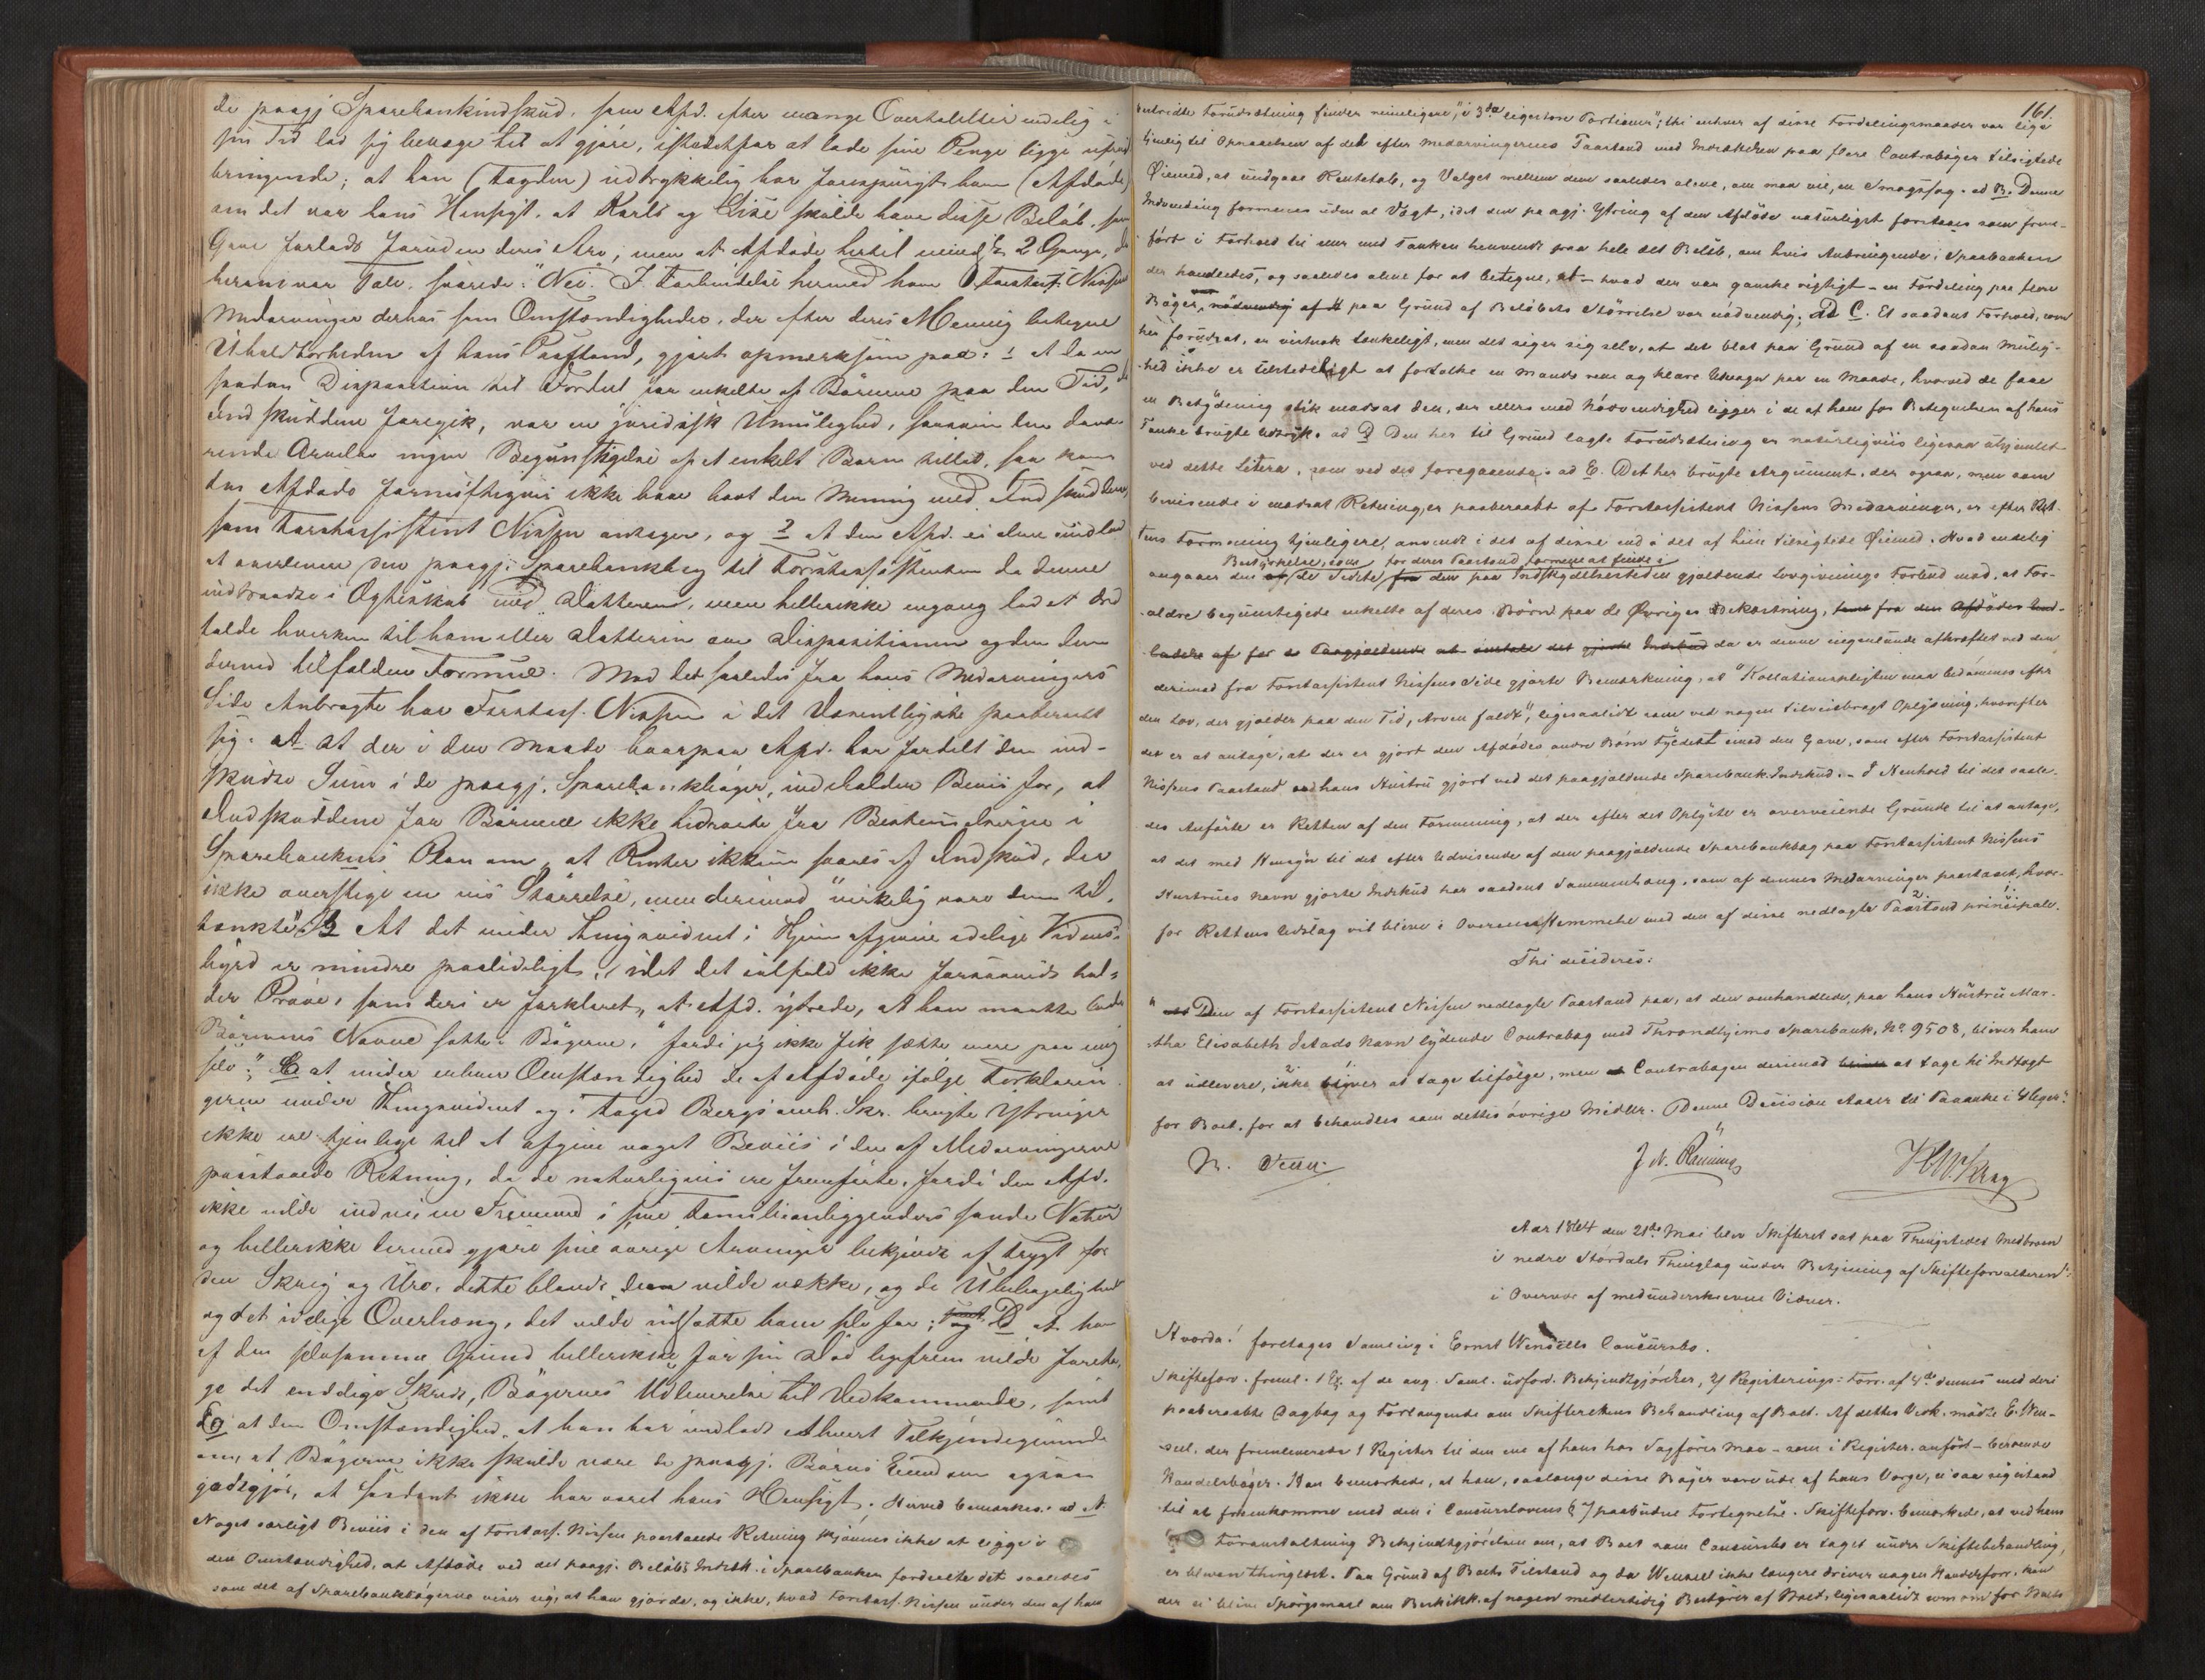 de paagj. Sparebankindskud, som Afd. efter mange Overtalelser endelig i
sin Tid lod sig bevæge til at gjøre, istedetfor at lade sine Penge ligge ufrugt-
bringende; at han (Lagdm) udtrykkelig har forespurgt ham (Afdøde)
om det var hans Hensigt, at Karls og Lise skulde have disse Beløb som
Gave forlods foruden deres Arv, men at Afdøde hertil mindst 2 Gange, da
herom var Tale, svarede: "Nei". I Forbindelse hermed have Forstass. Nissens
Medarvinger derhos som Omstændigheder, der efter deres Mening betegne
Uholdbarheden af hans Paastand, gjort opmerksom paa: 1 at da en
saadan Disposition til Fordeel for enkelte af Børnene paa den Tid, da
Indskuddene foregik, var en juridisk Umulighed, saasom den dava-
rende Arvelov ingen Begunstigelse af et enkelt Barn tillod, saa kan
den Afdøde fornuftigviis ikke have havt den Mening med Indskuddene,
som Forstassistent Nissen antager, og 2 at den Afd. ei alene undlod
at overlevere den paagj. Sparebankbog til Forstassistenten da denne
indtraadte i Ægteskab med Datteren, men hellerikke engang lod et Ord
falde hverken til ham eller Datteren om Dispositionen og den dem
derved tilfaldne Formue. Mod det saaledes fra hans Medarvingers
Side Anbragte har Forstass. Nissen i det Væsentligste paaberaabt
sig: A at der i den Maade hvorpaa Afd. har fordelt den ind-
skudte Sum i de paagj. Sparebankbøger, indeholder Beviis for, at
Indskuddene for Børnene ikke hidrørte fra Bestemmelserne i
Sparebankens Plan om, at Renter ikkun svares af Indskud, der
ikke overstige en vis Størrelse, men derimod "virkelig vare dem til-
tænkte"; B At det under Thingsvidnet i Hjem afgivne edelige Vidnes-
byrd er mindre paalideligt, idet det ialfald ikke forsaavidt hol-
der Prøve, som deri er forklaret, at Afd. ytrede, at han maatte lade
Børnenes Navne sætte i Bøgerne, "fordi jeg ikke fik sætte mere paa mig
selv"; C at under enhver Omstændighed de af Afdøde ifølge Forklarin-
gerne under Thingsvidnet og i Foged Bergs Skr. brugte Ytringer
ikke ere tjenlige til at afgive noget Beviis i den af Medarvingerne
paastaaede Retning, da de naturligviis ere fremførte, fordi den Afd.
ikke vilde indvie en Fremmed i sine Familieanliggenders sande Natur
og hellerikke dermed gjøre sine øvrige Arvinger bekjendt af Frygt for
den Skrig og Uro, dette blandt dem vilde vække, og de Ubehageligheder
og det idelige Overhæng, det vilde udsætte ham selv for; D at han
af den selvsamme Grund hellerikke før sin Død ligefrem vilde foreta-
ge det endelige Skridt, Bøgernes Udleverelse til Vedkommende, samt
E at den Omstændighed, at han har undladt ethvert Tilkjendegivende
om, at Bøgerne ikke skulde være de paagj. Børns Eiendom ogsaa
godtgjør, at Saadant ikke har været hans Hensigt. Herved bemærkes: ad A
Noget særligt Beviis i den af Forstass. Nissen paastaaede Retning skjønnes ikke at ligge i
den Omstændighed, at Afdøde ved det paagj. Beløbs Indsk. i Sparebanken fordeelte det saaledes
som det af Sparebankbøgerne viser sig, at han gjorde, og ikke, hvad Forstass. Nissen under den af ham
161.
bestridte Forudsætning finder rimeligere, "i 3de ligestore Portioner"; thi enhver af disse Fordelingsmaader var lige
tjenlig til Opnaaelsen af det efter Medarvingernes Paastand med Indskuddene paa flere Contrabøger tilsigtede
Øiemed, at undgaae Rentetab, og Valget mellem dem saaledes alene, om man vil, en Smagssag. ad B. Denne
Indvending formenes uden al Vægt, idet den paagj. Ytring af den Afdøde naturligst forstaaes som frem-
ført i Forhold til og med Tanken henvendt paa hele det Beløb, om hvis Anbringende i Sparebanken
der handledes, og saaledes alene for at betegne, at – hvad der var ganske rigtigt – en Fordeling paa flere
Bøger paa Grund af Beløbets Størrelse var nødvendig; Ad C. Et saadant Forhold, som
her forudsat, er vistnok tænkeligt, men det siger sig selv, at det blot paa Grund af en saadan Mulig-
hed ikke er tilstedeligt at fortolke en Mands rene og klare Udsagn paa en Maade, hvorved de faae
en Betydning stik modsat den, der ellers med Nødvendighed ligger i de af ham for Betegnelsen af hans
Tanke brugte Udtryk. ad D Den her til Grund lagte Forudsætning er naturligviis ligesaa uhjemlet
ved dette Litera, som ved det foregaaende. ad E. Det her brugte Argument, der ogsaa, men som
bevisende i modsat Retning, er paaberaabt af Forstassistent Nissens Medarvinger, er efter Ret-
tens Formening tjenligere, anvendt i det af disse end i det af hiin tilsigtede Øiemed. Hvad endelig
Bestyrkelse, som for deres Paastand formene at finde i
angaaer den de Sidste den paa Indskydelsestiden gjældende Lovgivnings Forbud mod, at For-
ældre begunstigede enkelte af deres Børn paa de Øvriges Bekostning,
da er denne ingenlunde afkræftet ved den
derimod fra Forstassistent Nissens Side gjorte Bemærkning, at "Kollationspligten maa bedømmes efter
den Lov, der gjælder paa den Tid, Arven faldt", ligesaalidt som ved nogen tilveiebragt Oplysning, hvorefter
det er at antage, at der er gjort den Afdødes andre Børn Fyldest imod den Gave, som efter Forstassistent
Nissens Paastand hans Hustru gjort ved det paagjældende Sparebank-Indskud. – I Henhold til det saale-
des Anførte er Retten af den Formening, at der efter det Oplyste er overveiende Grunde til at antage,
at det med Hensyn til det efter Udvisende af den paagjældende Sparebankbog paa Forstassistent Nissens
Hustrues Navn gjorte Indskud har saadant Sammenhæng, som af dennes Medarvinger paastaaet, hvor-
for Rettens Udslag vil blive i Overeensstemmelse med den af disse nedlagte Paastand principale.
Thi decideres:
"Den af Forstassistent Nissen nedlagte Paastand paa, at den omhandlede, paa hans Hustru Mar-
tha Elisabeth Jelstads Navn lydende Contrabog med Throndhjems Sparebank, No 9508, bliver ham
at udlevere, ikke bliver at tage tilfølge, men Contrabogen derimod at tage til Indtægt
for Boet, for at behandles som dettes øvrige Midler. Denne Decision staaer til Paaanke i 4 Uger."
J. N. Rønning
Aar 1864 den 21de Mai blev Skifteret sat paa Thingstedet Medbroen
i nedre Stördals Thinglag under Betjening af Skifteforvalteren
i Overvær af medunderskrevne Vidner.
Hvorda! foretoges Samling i Ernst Wensells Concursbo.
Skifteforv. freml. 1 Ex. af de ang. Saml. udførd. Bekjendtgjörelser, 2) Registerings-Forr. af 4de dennes med deri
paaberaabte Dagbog og Forlangende om Skifterettens Behandling af Boet. Af dettes Vedk. mødte E. Wen-
sell, der fremleverede 1 Register til den ene af hans hos Sagfører Moe – som i Register. anført – beroende
Handelsbøger. Han bemærkede, at han, saalænge disse Bøger vare ude af hans Værge, ei saa sig istand
til at fremkomme med den i Concurslovens § 7 paabudne Fortegnelse. Skifteforv. bemærkede, at ved hans
Foranstaltning Bekjendtgjørelsen om, at Boet som Concursbo er taget under Skiftebehandling,
er bleven thinglæst. Paa Grund af Boets Tilstand og da Wensell ikke længere driver nogen Handelsforr. kan
der ei blive Spørgsmaal om Beskikk. af nogen midlertidig Bestyrer af Boet, ligesaalidt som om for Boets